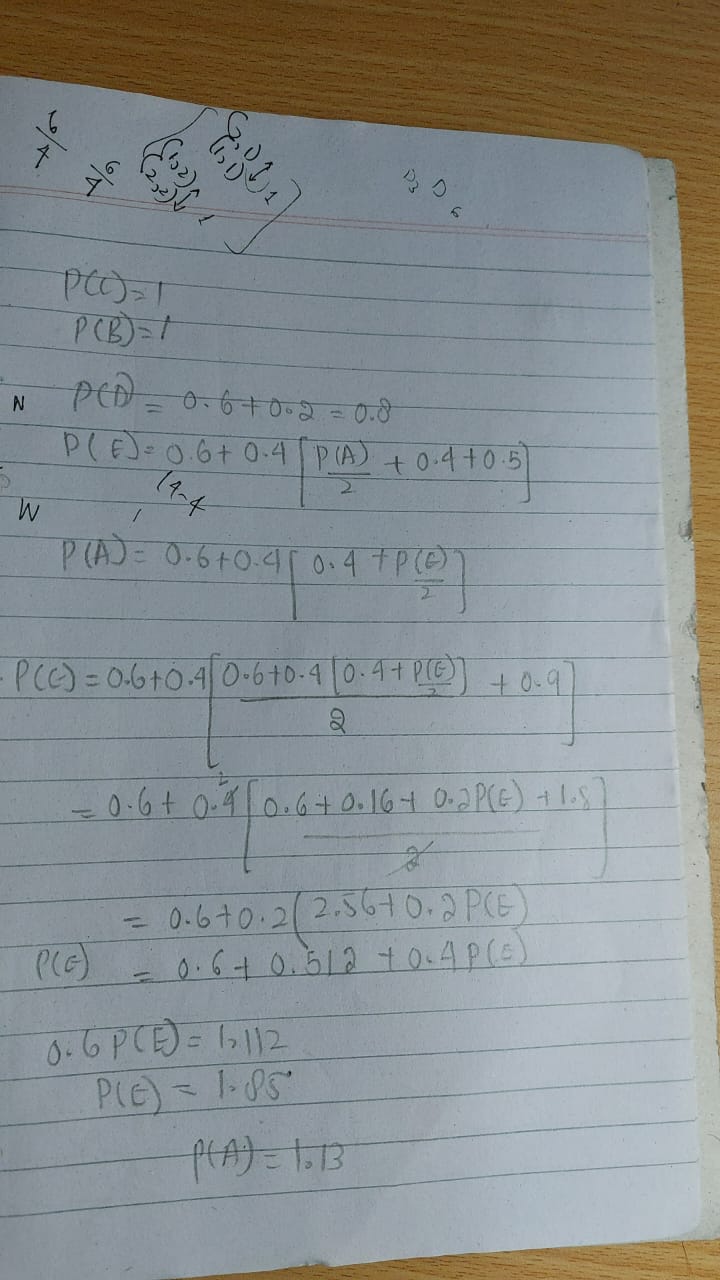 6/4
6/4
(1,2)
(2,2)
1
P(C)=1
P(B)=1
N
P(D) = 0.6+0.2 = 0.8
P(E)= 0.6+ 0.4 [P(A)/2 + 0.4+0.5]
W
P(A)= 0.6+0.4[0.4+P(E)/2]
P(E)=0.6+0.4[(0.6+0.4[0.4+P(E)/2])/2 + 0.9]
= 0.6+ 0.4[(0.6+0.16+0.2P(E)+1.8)/2]
= 0.6+0.2(2.56+0.2P(E)
P(E) = 0.6+0.512+0.4P(E)
0.6P(E)=1.112
P(E) = 1.85
P(A)=1.13